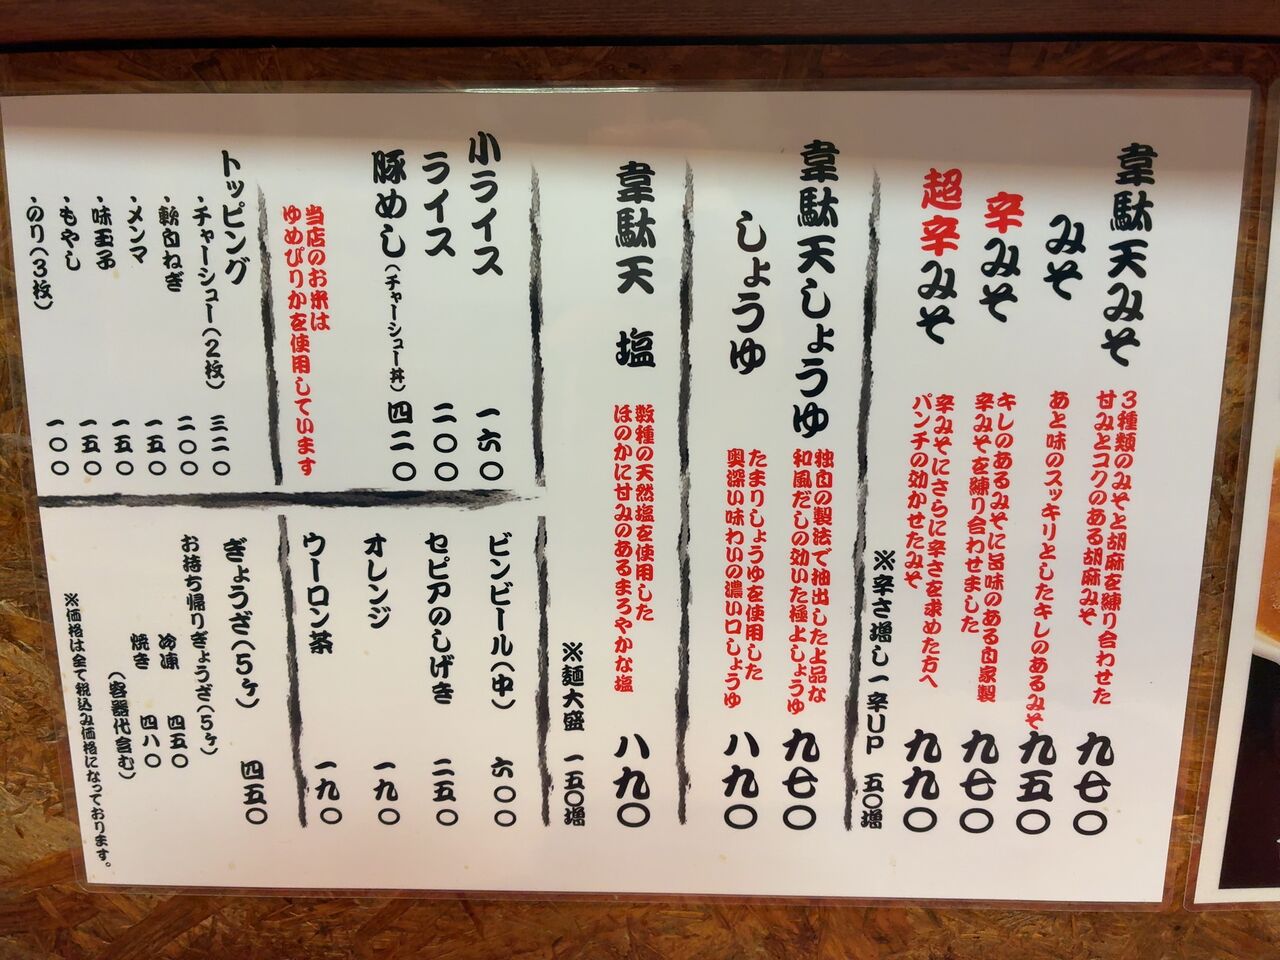 韋駄天みそ 3種類のみそと胡麻を練り合わせた 九七〇
甘みとコクのある胡麻みそ
みそ あと味のスッキリとしたキレのあるみそ 九五〇
辛みそ キレのあるみそに旨味のある自家製 九七〇
辛みそを練り合わせました
超辛みそ 辛みそにさらに辛さを求めた方へ 九九〇
パンチの効かせたみそ
※辛さ増し一辛UP 五〇増
韋駄天しょうゆ 独自の製法で抽出した上品な 九七〇
和風だしの効いた極上しょうゆ
しょうゆ たまりしょうゆを使用した 八九〇
奥深い味わいの濃い口しょうゆ
韋駄天 塩 数種の天然塩を使用した 八九〇
ほのかに甘みのあるまろやかな塩
※麺大盛 一五〇増
小ライス 一六〇
ライス 二〇〇
豚めし(チャーシュー丼) 四二〇
当店のお米は
ゆめぴりかを使用しています
トッピング
・チャーシュー(2枚) 三二〇
・軟白ねぎ 二〇〇
・メンマ 一五〇
・味玉子 一五〇
・もやし 一五〇
・のり(3枚) 一〇〇
ビンビール(中) 六〇〇
セピアのしげき 二五〇
オレンジ 一九〇
ウーロン茶 一九〇
ぎょうざ(5ヶ) 四五〇
お持ち帰りぎょうざ(5ヶ)
冷凍 四五〇
焼き 四八〇
(容器代含む)
※価格は全て税込み価格になっております。